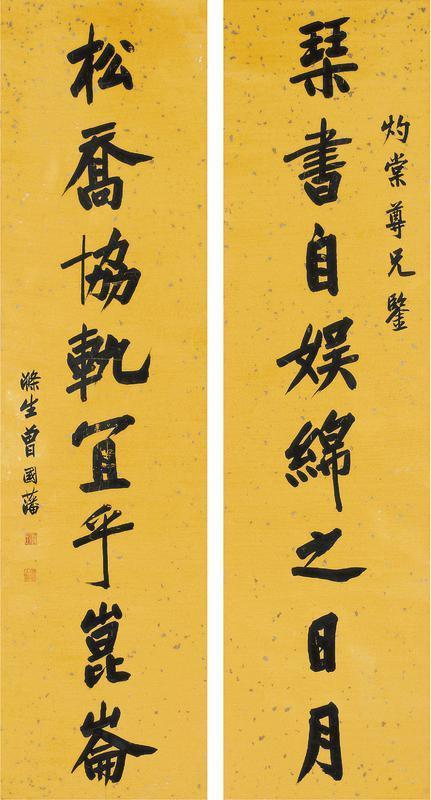 灼棠尊兄鑒
琹書自娱綿之日月
松喬協軌冝乎崑崙
滌生曾國藩